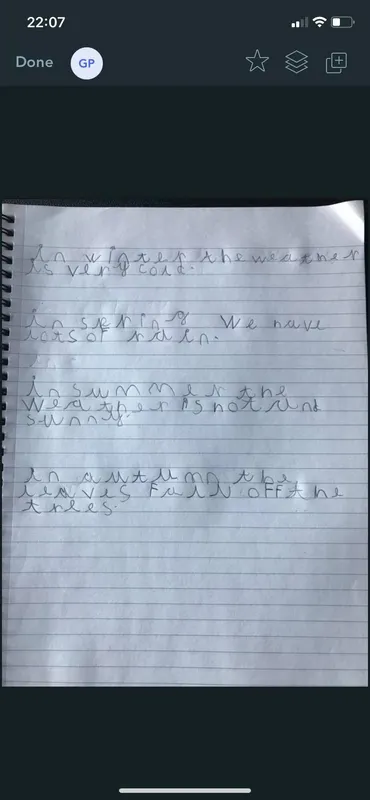 22:07
Done
GP
in winter the weather
is very cold.
in spring We have
lots of rain.
in summer the
weather is hot and
sunny.
in autumn the
leaves Fall off the
trees.